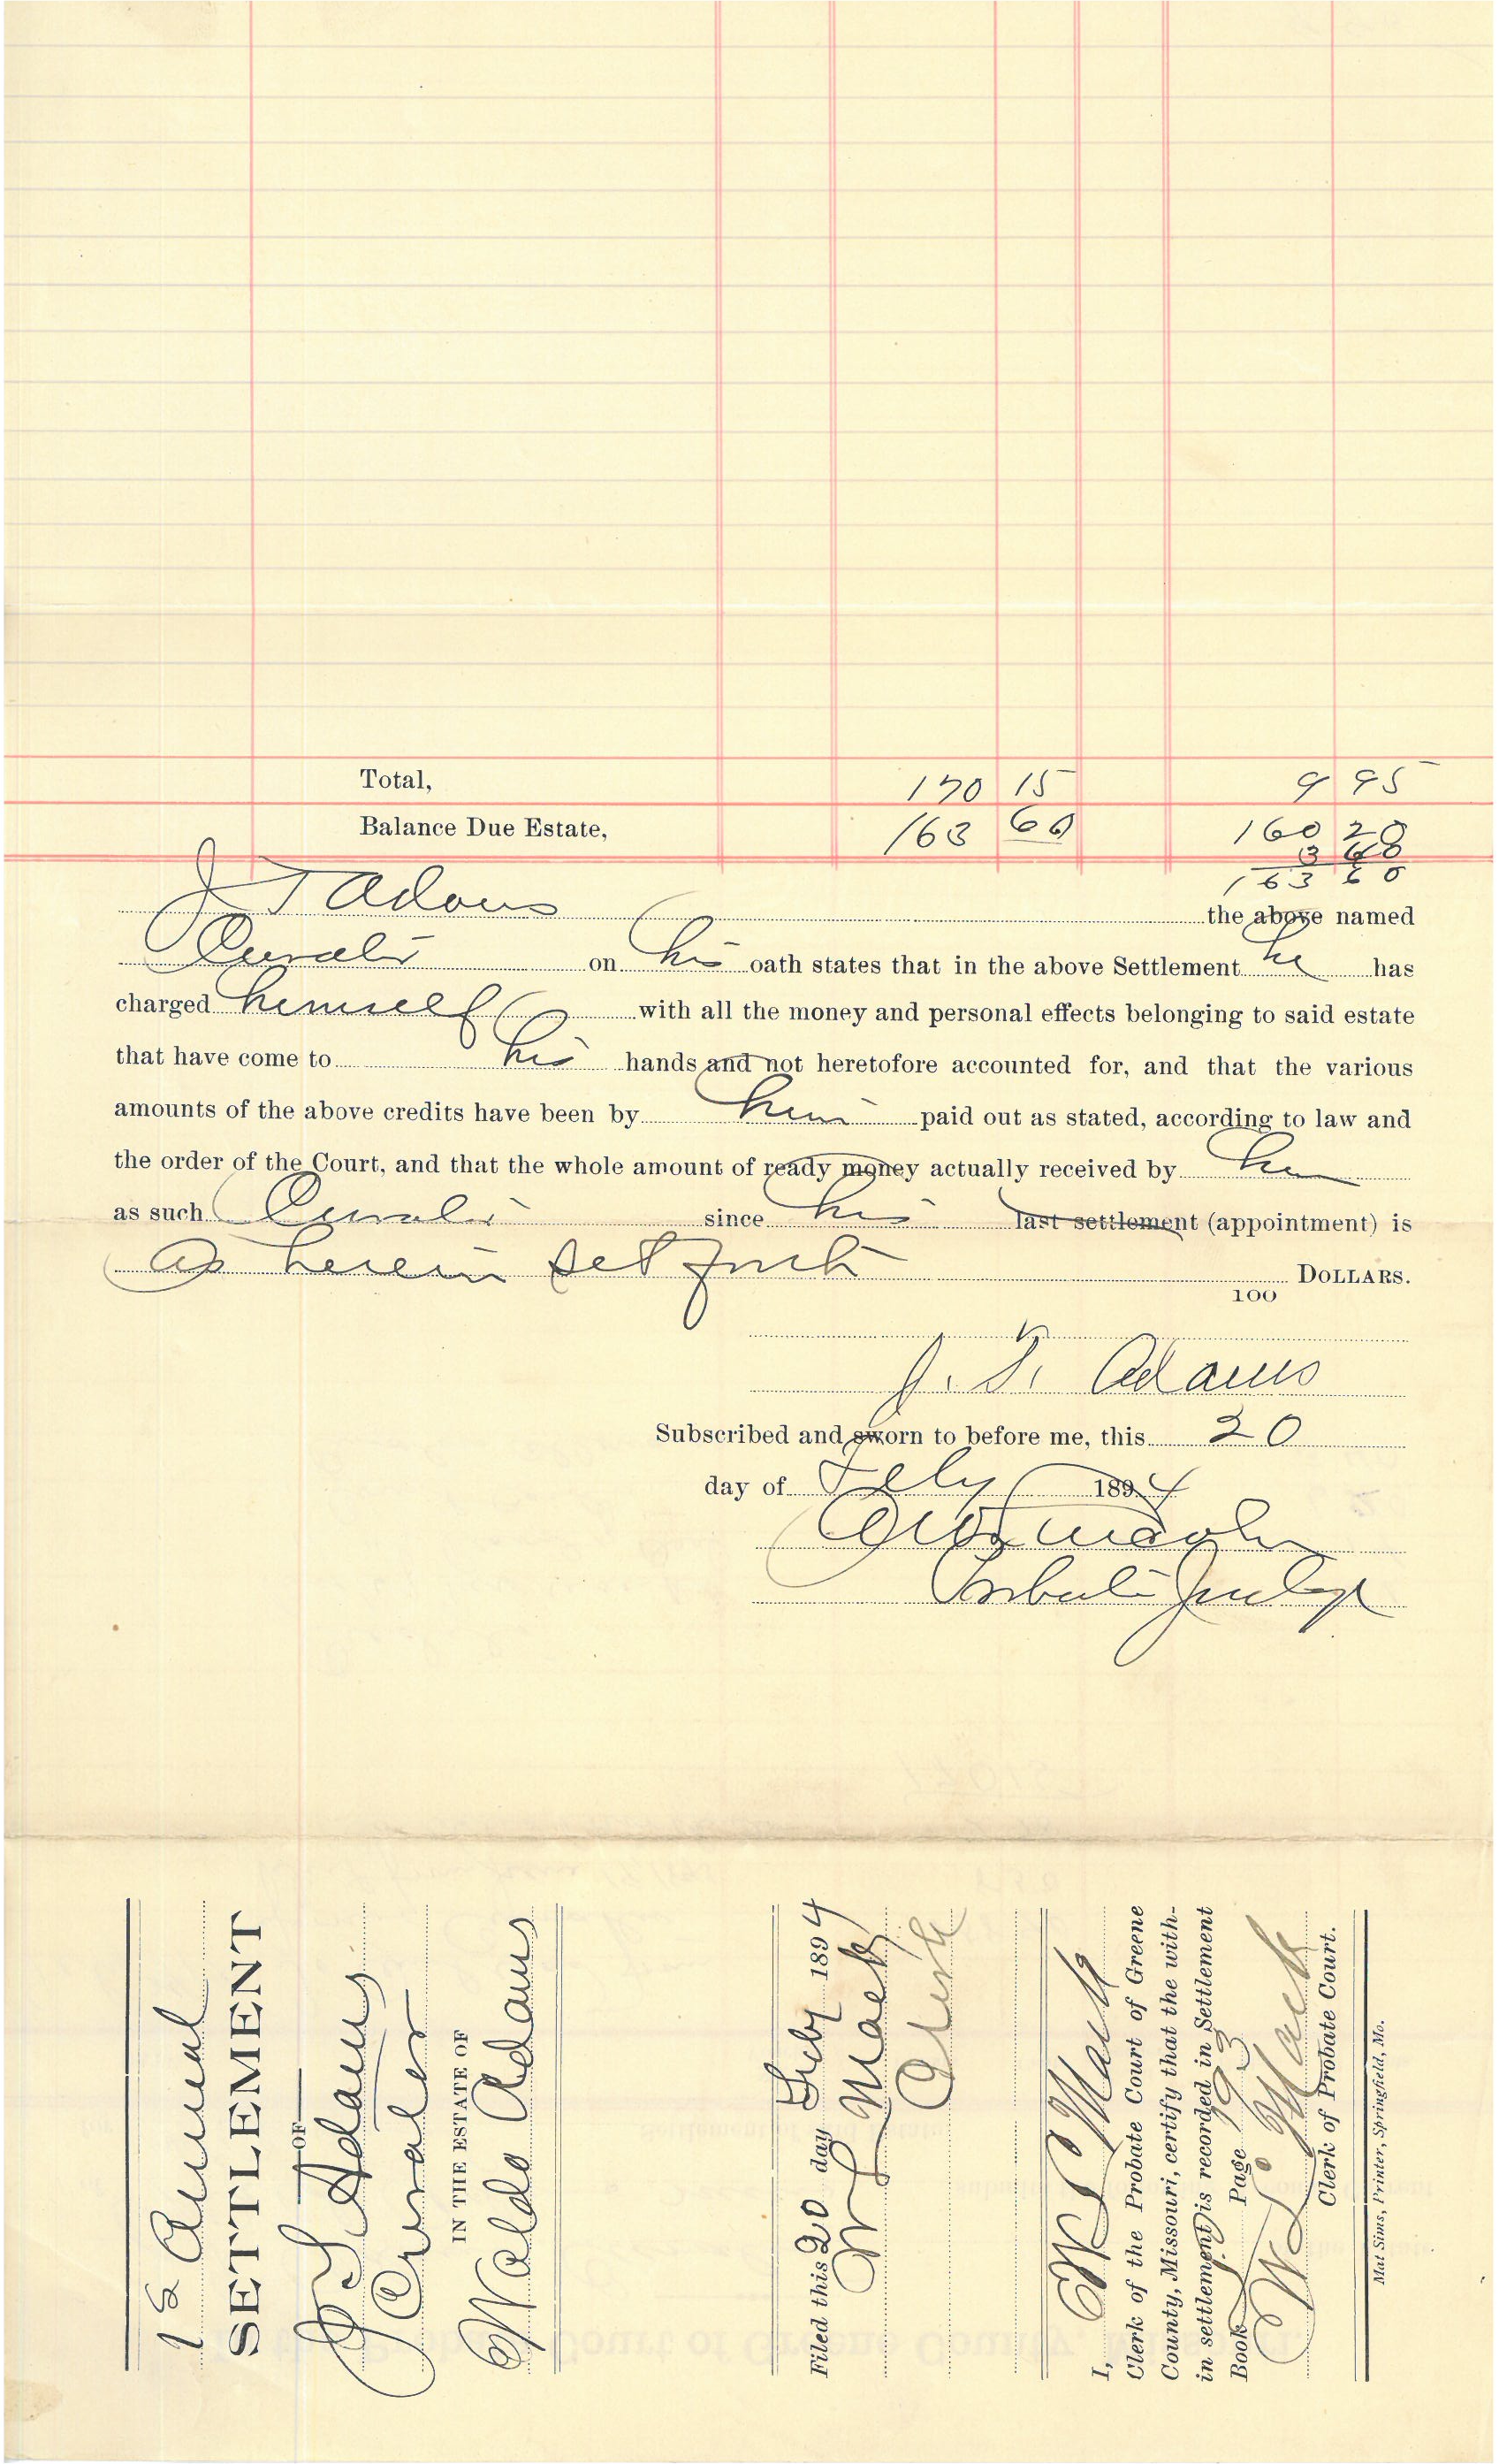 Total, 170 15 9 95
Balance Due Estate, 163 60 160 20
3 40
163 60
J T Adams the above named
Curator on his oath states that in the above Settlement he has
charged himself with all the money and personal effects belonging to said estate
that have come to his hands and not heretofore accounted for, and that the various
amounts of the above credits have been by him paid out as stated, according to law and
the order of the Court, and that the whole amount of ready money actually received by him
as such Curator since his last settlement (appointment) is
as herein set forth DOLLARS.
100
J. T. Adams
Subscribed and sworn to before me, this 20
day of Feby 1894
Probate Judge
1st Annual
SETTLEMENT
OF
J T Adams
Curator
IN THE ESTATE OF
Waldo Adams
Filed this 20 day Feby 1894
Mack
Clerk
I, Mack
Clerk of the Probate Court of Greene
County, Missouri, certify that the with-
in settlement is recorded in Settlement
Book Page 193
Mack
Clerk of Probate Court.
Mat Sims, Printer, Springfield, Mo.